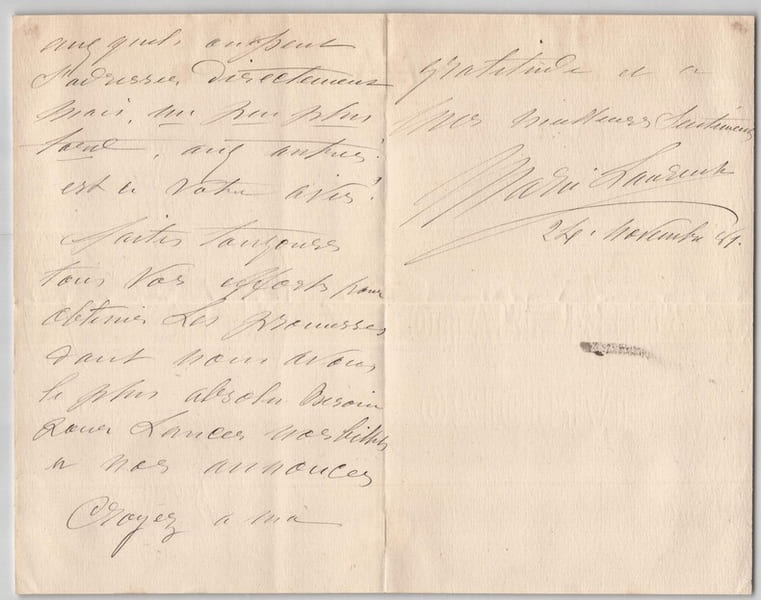 auxquels on peut
s'adresser directement
mais, un peu plus
tard, aux autres.
est-ce votre avis?
Faites toujours
tous vos efforts pour
obtenir les promesses
dont nous avons
le plus absolu besoin
pour lancer nos billets
et nos annonces
Croyez a ma
gratitude et a
mes meilleurs sentiments
Marie Laurent
24. novembre 81.